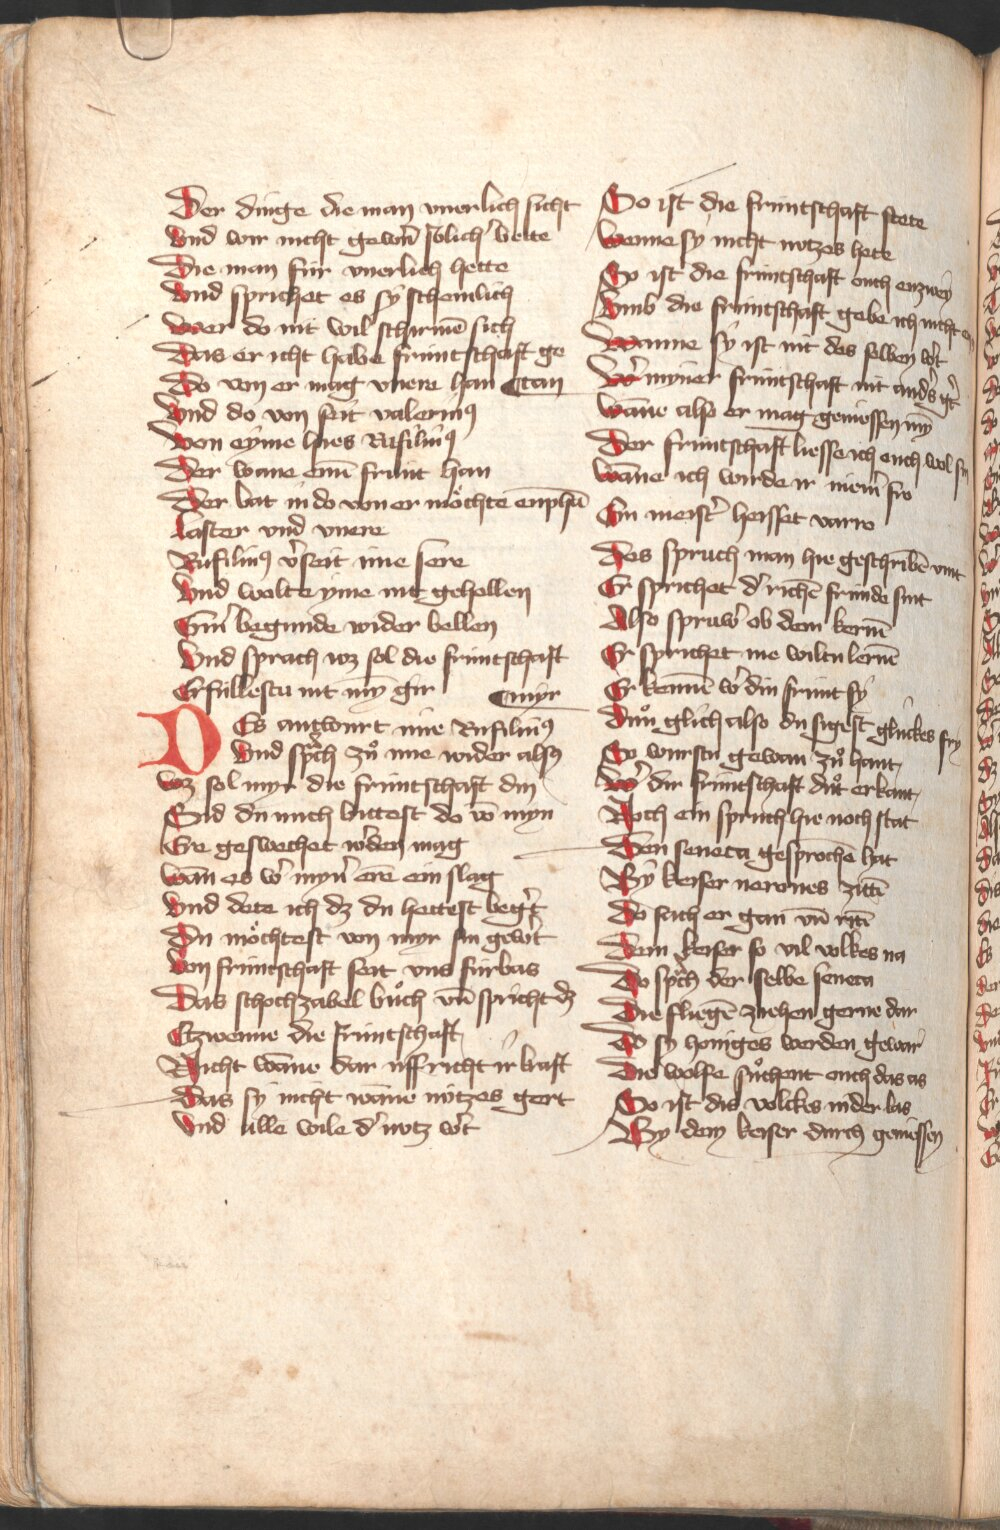 Der dinge die man vnerlich sicht
Vnd wir nicht gewñ sólich bette
Die man für vnerlich hette
Vnd sprichet es sÿ schemlich
Wer do nit wil schirmē sich
Das er icht habe frúntschaft ge
Do von er mag vnere han ¶tan
Vnd do von seit valeriuꝰ
Von eyme hies Rúfiliuꝰ
Der wane einē frúnt han
Der bat in do von er möchte enphā
Laster vnd vnere
Rufiliuꝰ v̾seit ime sere
Vnd wolte yme nit gehellen
Ein̾ begunde wider bellen
Vnd sprach wz sol die frúntschaft
Erfúllestu nit mȳ gir ¶myr
Des antwurt ime Rufiliuꝰ
Vnd spͣch zuͦ ime wider alsꝰ
Wz sol myr die frúntschaft din
Sid du mich bittest do vō myn
Ere geswechet w̾den mag
Wān es w̾ myn̾ erē ein slag
Vnd dete ich dz du hettest beg̾t
Du möchtest von myr sin gew̾t
Von frúntschaft seit vns fúrbas
Das schochzabel buͦch vn̄ spricht dz
Etzwenne die frúntschaft
Nicht wāne dar uff richt ir kraft
Das sÿ nicht wāne nútzes gert
Vnd alle wile d̾ nutz w̾t
So ist die frúntschaft stete
Wenne sy nicht nutzes hete
So ist die frúntschaft ouch enzwey
Vmb die frúntschaft gebe ich nicht
Wanne sÿ ist nit des selben w̾t
W̾ myner frúntschaft nit and̾s g̾t
Wāne also er mag geniessen mȳ
Der frúntschaft liesse ich ouch wol sin
Wāne ich wirde ir niem̾ fro
Ein meist̾ heisset varro
Des spruch man hie geschribē vint
Er sprichet d̾ richē frúnde sint
Also spruw̾ ob dem kernē
Er sprichet nie wiltu lernē
Erkennē w̾ din frúnt sÿ
Duͦ glich also du sigest glückes fry
So wurstu gewar zuͦ hant
W̾ dir frúntschaft duͦt erkant
Noch ein spruch hie noch stat
Den seneca gesprochē hat
Bÿ keiser nerones zitē
Do sach er gan vn̄ ritē
Dem keiser so vil volkes na
Do spͣch der selbe seneca
Die fliegē ziehen gerne dar
Do sy honiges werden gewar
Die wolfe suͦchent ouch das as
So ist dis volckes nider las
By dem keiser durch geniessen